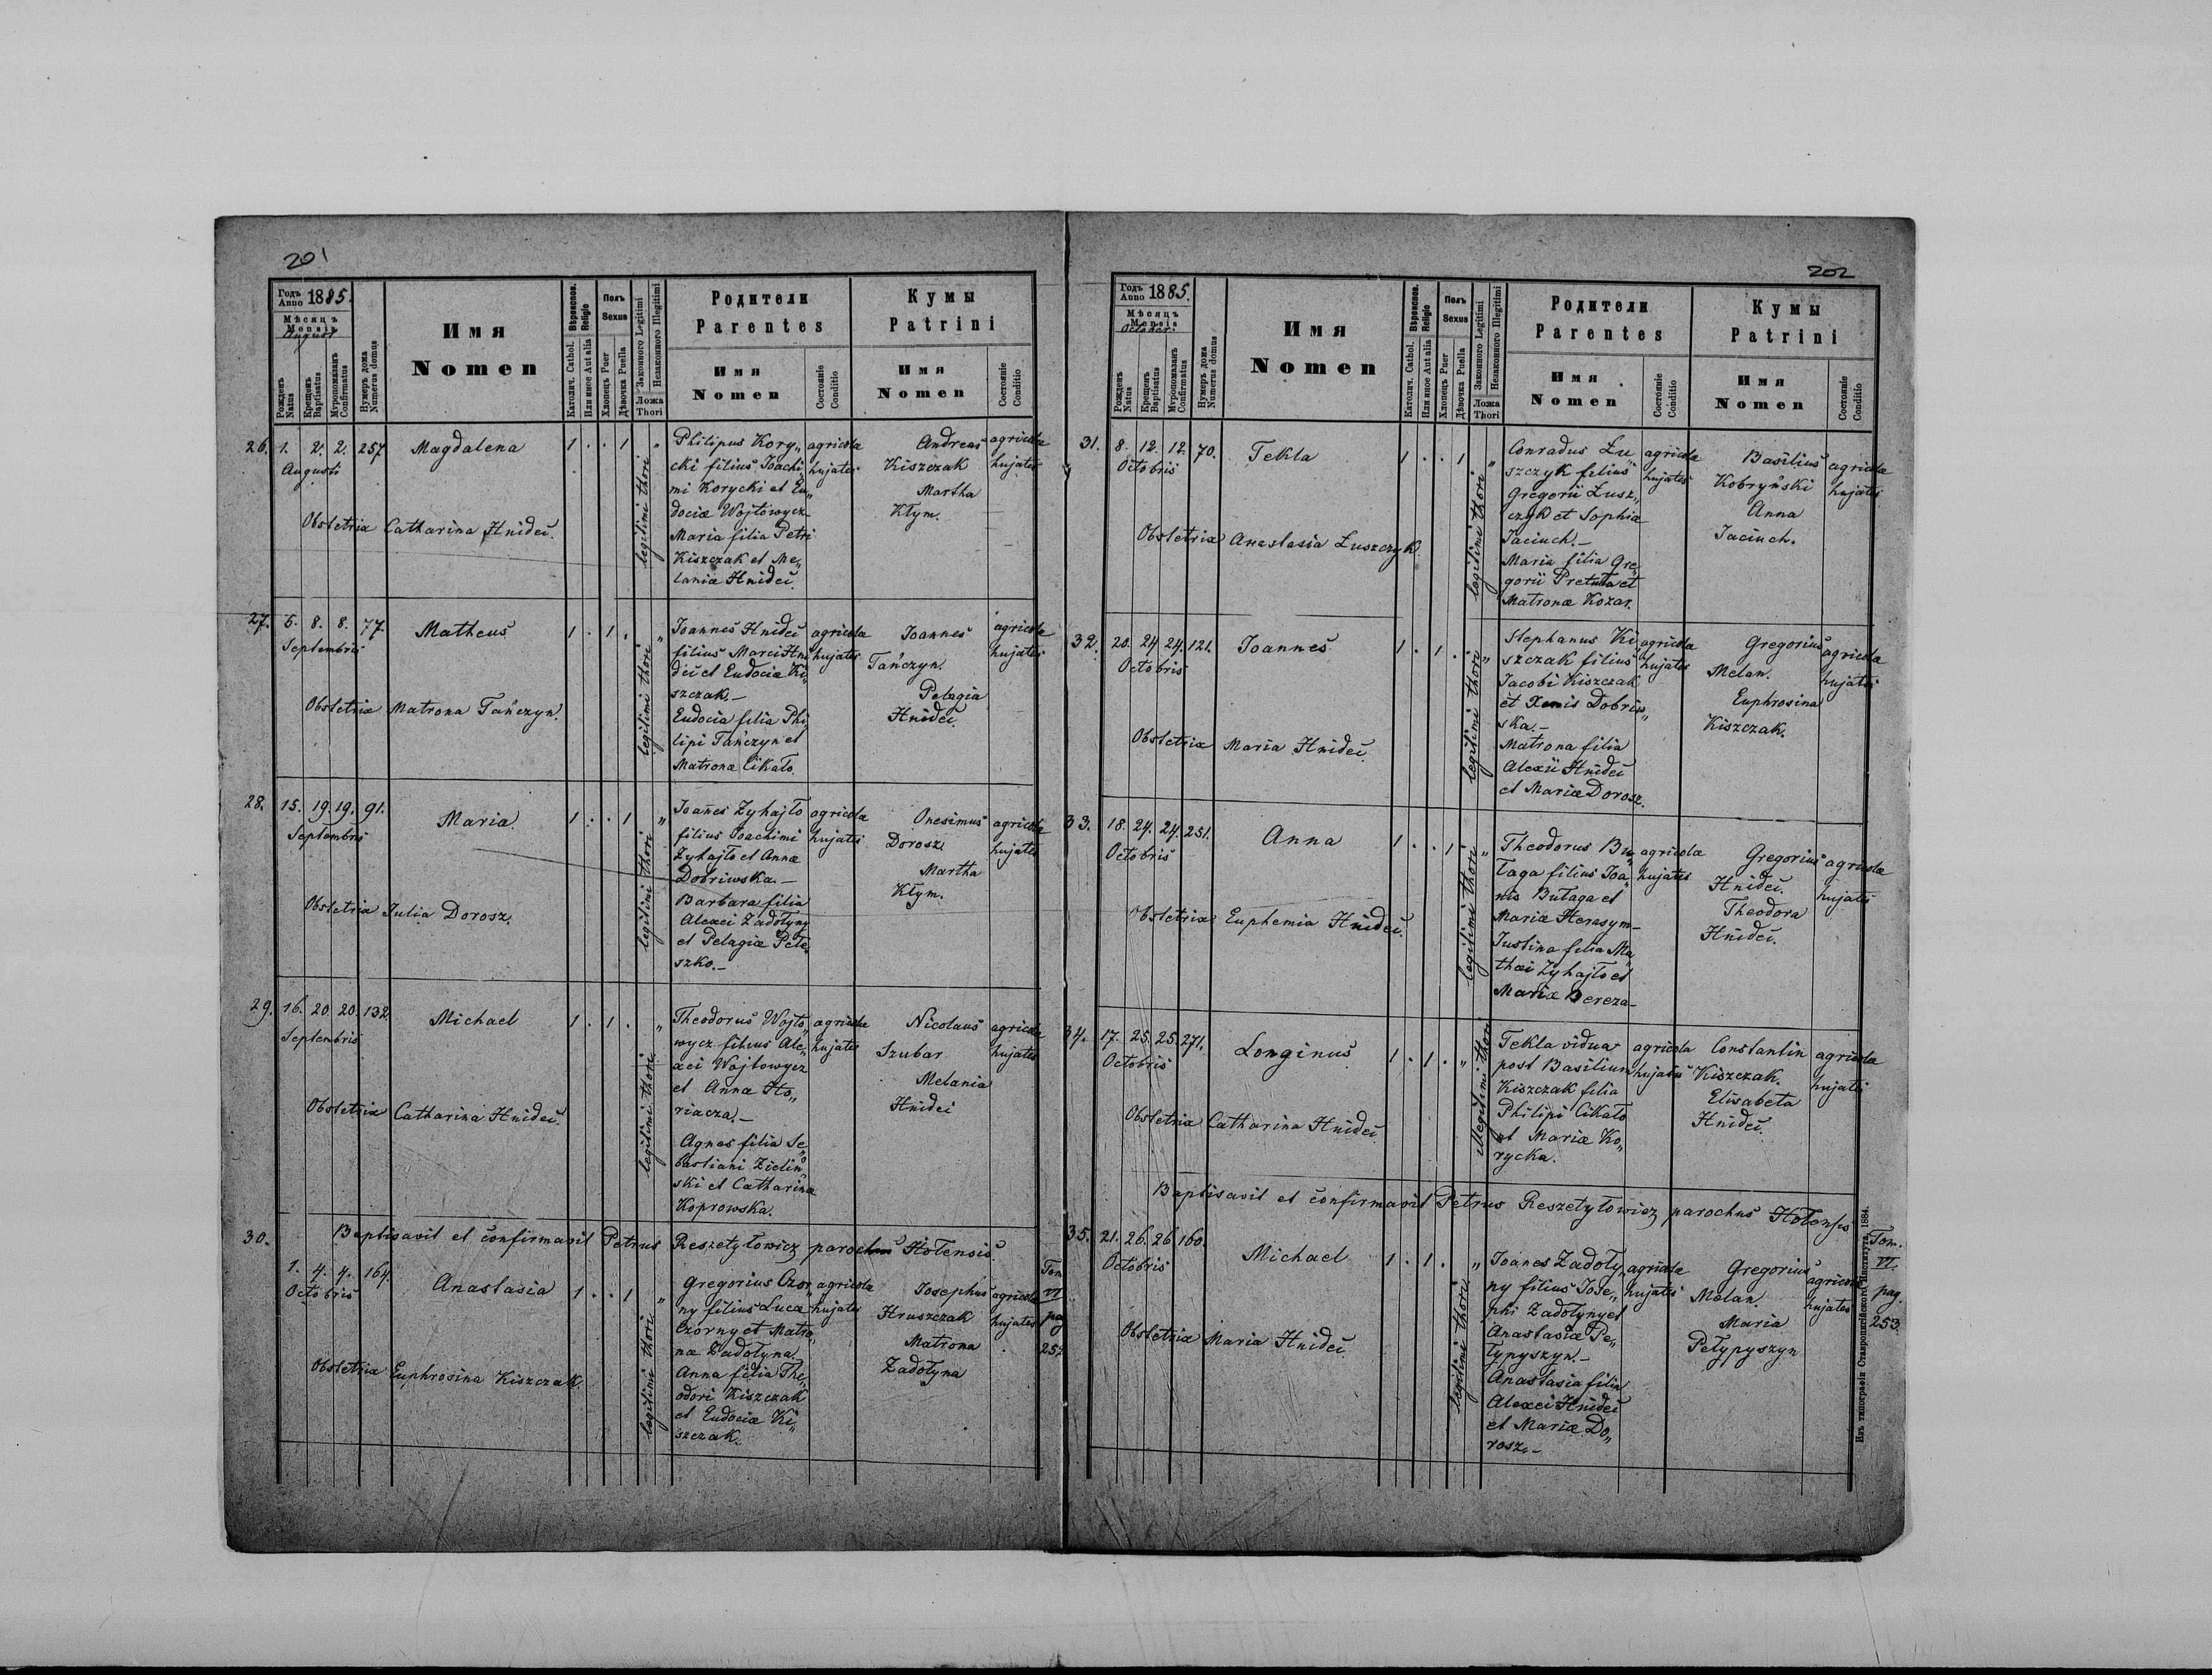 201
Годъ Anno 1885.
Мѣсяцъ
Mensis
August
Рожденъ Natus
Крещенъ Baptisatus
Муропомазанъ Confirmatus
Нумеръ дома Numerus domus
Имя
Nomen
Вѣроисповѣд. Religio
Католич. Cathol.
Или иное Aut alia
Полъ Sexus
Хлопецъ Puer
Дѣвочка Puella
Законного Legitimi
Незаконного Illegitimi
Ложа Thori
Родители
Parentes
Имя
Nomen
Состояніе Conditio
Кумы
Patrini
Имя
Nomen
Состояніе Conditio
26. 1. 2. 2. 257 Magdalena 1 . . 1 "
Augusti
Obstetrix Catharina Hnidei.
legitimi thori
Philipus Kory„
cki filius Joachi„
mi Korycki et Eu„
dociæ Wojtowycz
Maria filia Petri
Kiszczak et Me„
laniæ Hnidei
agricolæ
hujates
Andreas
Kiszczak
Martha
Kłym.
agricolæ
hujates
27. 5. 8. 8. 77. Matheus 1 . 1 . "
Septembris
Obstetrix Matrona Tańczyn.
legitimi thori
Joannes Hnidei
filius Marci Hni
dei et Eudociæ Ki„
szczak.–
Eudocia filia Phi
lipi Tańczyn et
Matronæ Cikało.
agricolæ
hujates
Joannes
Tańczyn.
Pelagia
Hnidei.
agricolæ
hujates
28. 15. 19. 19. 91. Maria. 1 . . 1 "
Septembris
Obstetrix Julia Dorosz.
legitimi thori
Joañes Zyhajło
filius Joachimi
Zyhajło et Annæ
Dobriwska.–
Barbara filia
Alexei Zadołyny
et Pelagiæ Pele„
szko.–
agricolæ
hujates
Onesimus
Dorosz
Martha
Kłym.
agricolæ
hujates
29. 16. 20. 20. 132. Michael 1 . 1 . "
Septembris
Obstetrix Catharina Hnidei.
legitimi thori
Theodorus Wojto„
wycz filius Ale„
xei Wojtowycz
et Annæ Ho„
riacza.–
Agnes filia Se„
bastiani Zielin„
ski et Catharinæ
Koprowska.
agricolæ
hujates
Nicolaus
Szubar
Melania
Hnidei
agricolæ
hujates
Baptisavit et confirmavit Petrus Reszetyłowicz parochus Hołensis.
30. 1. 4. 4. 164. Anastasia 1 . . 1 "
Octobris
Obstetrix Euphrosina Kiszczak.
legitimi thori
Gregorius Czor„
ny filius Lucæ
Czorny et Matro„
næ Zadołyna.
Anna filia The„
odori Kiszczak
et Eudociæ Ki„
szczak.
agricolæ
hujates
Josephus
Hruszczak
Matrona
Zadołyna
agricolæ
hujates
Tom
VI
pag
252
202
Годъ Anno 1885.
Мѣсяцъ
Mensis
October.
Рожденъ Natus
Крещенъ Baptisatus
Муропомазанъ Confirmatus
Нумеръ дома Numerus domus
Имя
Nomen
Вѣроисповѣд. Religio
Католич. Cathol.
Или иное Aut alia
Полъ Sexus
Хлопецъ Puer
Дѣвочка Puella
Законного Legitimi
Незаконного Illegitimi
Ложа Thori
Родители
Parentes
Имя
Nomen
Состояніе Conditio
Кумы
Patrini
Имя
Nomen
Состояніе Conditio
31. 8. 12. 12. 70. Tekla 1 . . 1 "
Octobris
Obstetrix Anastasia Łuszczyk.
legitimi thori
Conradus Łu„
szczyk filius
Gregorii Łusz„
czyk et Sophiæ
Jaciuch.–
Maria filia Gre„
gorii Pretuła et
Matronæ Kozar.
agricolæ
hujates
Basilius
Kobryński
Anna
Jaciuch.
agricolæ
hujates
32. 20. 24. 24. 121. Joannes 1 . 1 . "
Octobris
Obstetrix Maria Hnidei.
legitimi thori
Stephanus Ki
szczak filius
Jacobi Kiszczak
et Xenis Dobriw„
ska.–
Matrona filia
Alexii Hnidei
et Mariæ Dorosz.
agricolæ
hujates
Gregorius
Melan.
Euphrosina
Kiszczak.
agricolæ
hujates
33. 18. 24. 24. 251. Anna 1 . . 1 "
Octobris
Obstetrix Euphemia Hnidei.
legitimi thori
Theodorus Bu„
łaga filius Joa„
nis Bułaga et
Mariæ Herasym–
Justina filia Ma„
thæi Zyhajło et
Mariæ Bereza–
agricolæ
hujates
Gregorius
Hnidei.
Theodora
Hnidei.
agricolæ
hujates
34. 17. 25. 25. 271. Longinus 1 . 1 . "
Octobris
Obstetrix Catharina Hnidei
illegitimi thori
Tekla vidua
post Basilium
Kiszczak filia
Philipi Cikało
et Mariæ Ko„
rycka.
agricolæ
hujates
Constantin
Kiszczak.
Elisabeta
Hnidei.
agricolæ
hujates
Baptisavit et confirmavit Petrus Reszetyłowicz parochus Hołensis
35. 21. 26. 26. 160. Michael 1 . 1 . "
Octobris
Obstetrix Maria Hnidei
legitimi thori
Joanes Zadoły„
ny filius Jose„
phi Zadołyny et
Anastasiæ Pe„
łypyszyn.–
Anastasia filia
Alexei Hnidei
et Mariæ Do„
rosz.–
agricolæ
hujates
Gregorius
Melan.
Maria
Pełypyszyn
agricolæ
hujates
Tom.
VI.
pag.
253.
Изъ типографіи Ставропигійского Института, 1884.